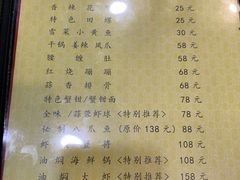 香辣花 25元
特色回爆 25元
雪菜小黄鱼 30元
干锅姜辣凤爪 58元
腰馇肚 58元
红烧硼硼 68元
蒜香排骨 68元
特色蟹钳/蟹钳面 78元
全味/蒜蓉虾球<特别推荐> 78元
秘制八爪鱼(原价138元) 88元
虾 108元
油焖海鲜锅<特别推荐> 108元
油焖大虾<特别推荐> 158元